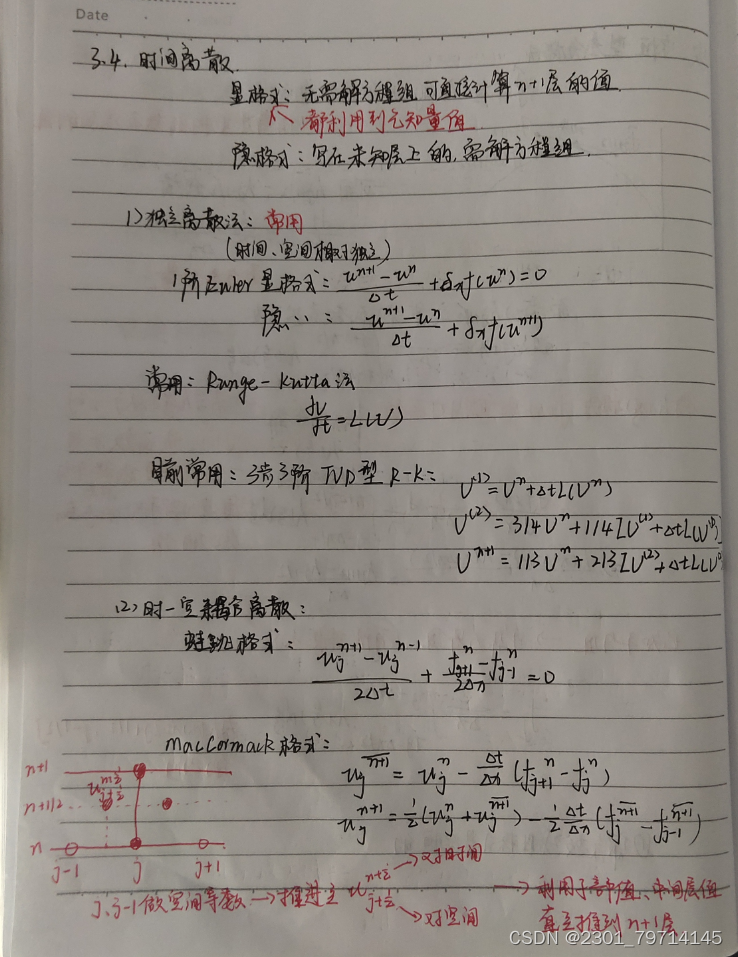 Date
3.4. 时间离散
显格式: 无需解方程组 可直接计算 n+1层的值
都利用到已知量值
隐格式: 写在未知层上的, 需解方程组
1) 独立离散法: 常用
(时间、空间相互独立)
1阶Euler 显格式: \frac{u^{n+1}-u^n}{Δt} + δ_x f(u^n) = 0
隐‥: \frac{u^{n+1}-u^n}{Δt} + δ_x f(u^{n+1})
常用: Runge-Kutta法
\frac{dU}{dt} = L(U)
目前常用: 3步3阶 TVD型 R-K:
U^{(1)} = U^n + Δt L(U^n)
U^{(2)} = 3/4 U^n + 1/4 [U^{(1)} + Δt L(U^{(1)})]
U^{n+1} = 1/3 U^n + 2/3 [U^{(2)} + Δt L(U
(2) 时-空耦合离散:
蛙跳格式: \frac{u_j^{n+1}-u_j^{n-1}}{2Δt} + \frac{f_{j+1}^n-f_{j-1}^n}{2Δx} = 0
MacCormack格式:
u_j^{\overline{n+1}} = u_j^n - \frac{Δt}{Δx} (f_{j+1}^n - f_j^n)
u_j^{n+1} = \frac{1}{2} (u_j^n + u_j^{\overline{n+1}}) - \frac{1}{2} \frac{Δt}{Δx} (f_j^{\overline{n+1}} - f_{j-1}^{\overline{n+1}})
n+1
n+1/2
n
j-1 j j+1
j、j-1做空间导数 → 推进至 u_{j+\frac{1}{2}}^{n+\frac{1}{2}}
→对时间
→对空间
→ 利用 值、中间层值
直接推到 n+1层
CSDN @2301_79714145